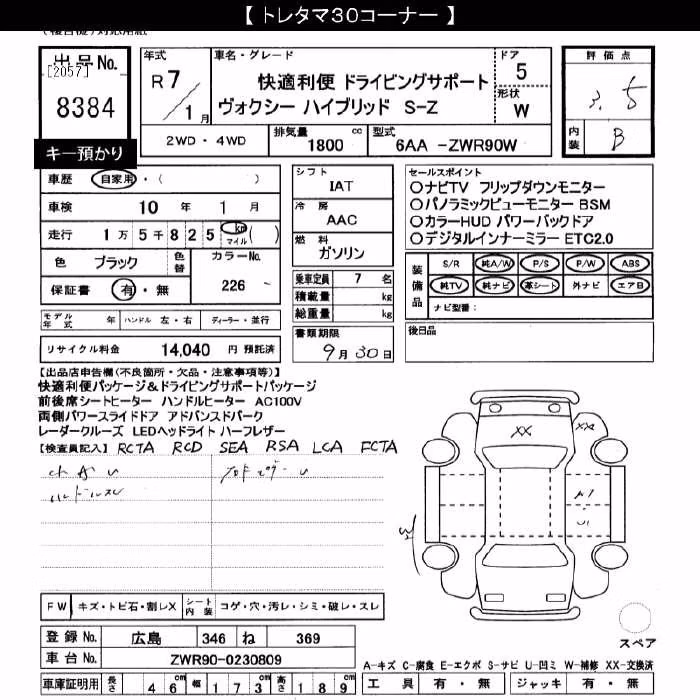 【 トレタマ30コーナー 】
出品No.
[2057]
8384
キー預かり
年式
R7/1月
車名・グレード
快適利便 ドライビングサポート
ヴォクシー ハイブリッド S-Z
ドア
5
形状
W
評価点
3.5
内装
B
2WD・4WD
排気量
1800 cc
型式
6AA -ZWR90W
車歴 自家用・( )
車検 10 年 1 月
走行 1万5千825 km マイル ( )
色 ブラック 色替
カラーNo.
226
保証書 有・無
モデル年式 年 ハンドル 左・右 ディーラー・並行
リサイクル料金 14,040 円 預託済
シフト
IAT
冷房
AAC
燃料
ガソリン
乗車定員 7 名
積載量 kg
総重量 kg
書類期限
9月30日
セールスポイント
〇ナビTV フリップダウンモニター
〇パノラミックビューモニター BSM
〇カラーHUD パワーバックドア
〇デジタルインナーミラー ETC2.0
装備品
S/R 純A/W P/S P/W ABS
純TV 純ナビ 革シート 外ナビ エアB
ナビ型番:
後日品
【出品店申告欄(不良箇所・欠品・注意事項等)】
快適利便パッケージ&ドライビングサポートパッケージ
前後席シートヒーター ハンドルヒーター AC100V
両側パワースライドドア アドバンスドパーク
レーダークルーズ LEDヘッドライト ハーフレザー
【検査員記入】 RCTA RCD SEA RSA LCA FCTA
XX
XX
A1
U1
W
FW キズ・トビ石・割レX シート内装 コゲ・穴・汚レ・シミ・破レ・スレ
登録No. 広島 346 ね 369
車台No. ZWR90-0230809
車庫証明用 長さ 46 cm 幅 173 cm 高さ 189 cm
スペア
A-キズ C-腐食 E-エクボ S-サビ U-凹ミ W-補修 XX-交換済
工具 有・無 ジャッキ 有・無